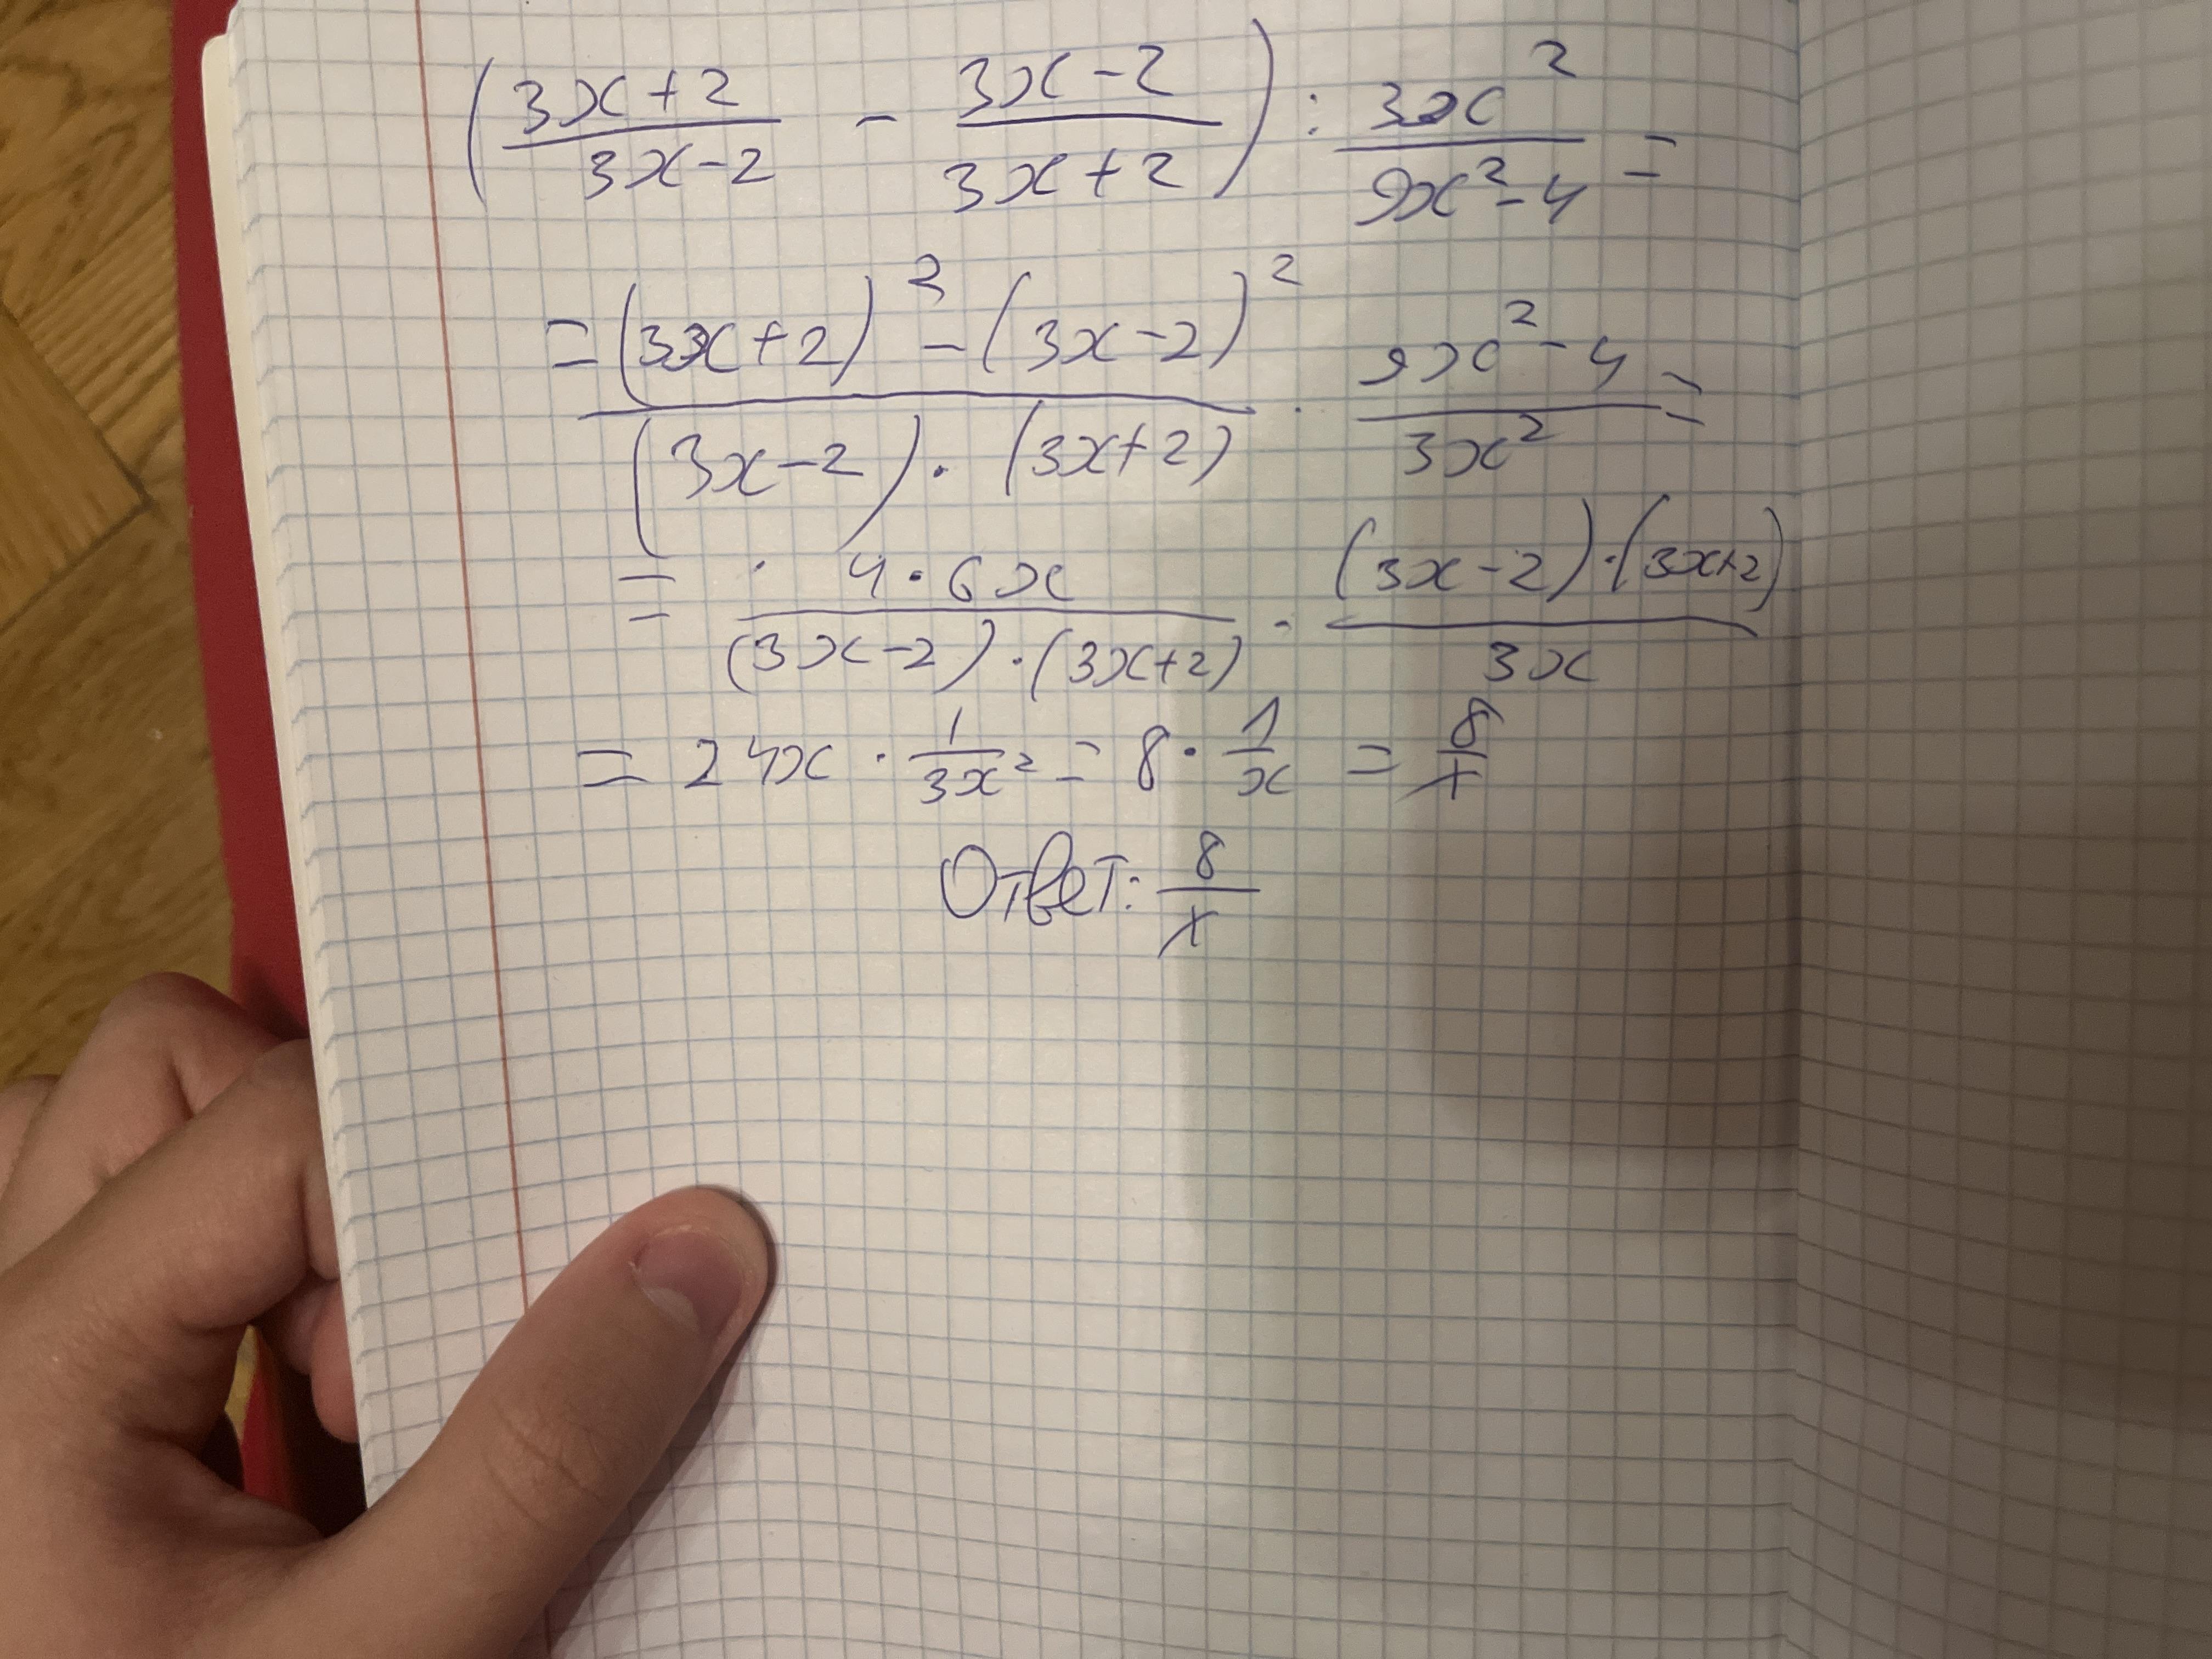 (3x+2/3x-2 - 3x-2/3x+2) : 3x²/9x²-4 =
= (3x+2)² - (3x-2)²/(3x-2)·(3x+2) · 9x²-4/3x² =
= · 4·6x/(3x-2)·(3x+2) · (3x-2)·(3x+2)/3x
= 24x · 1/3x² = 8 · 1/x = 8/x
Ответ: 8/x